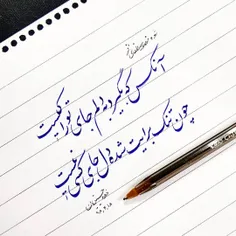 آنکس که بگیرد به دلم جای تو را کیست
چون تنگ برایت شده دل جای کسی نیست